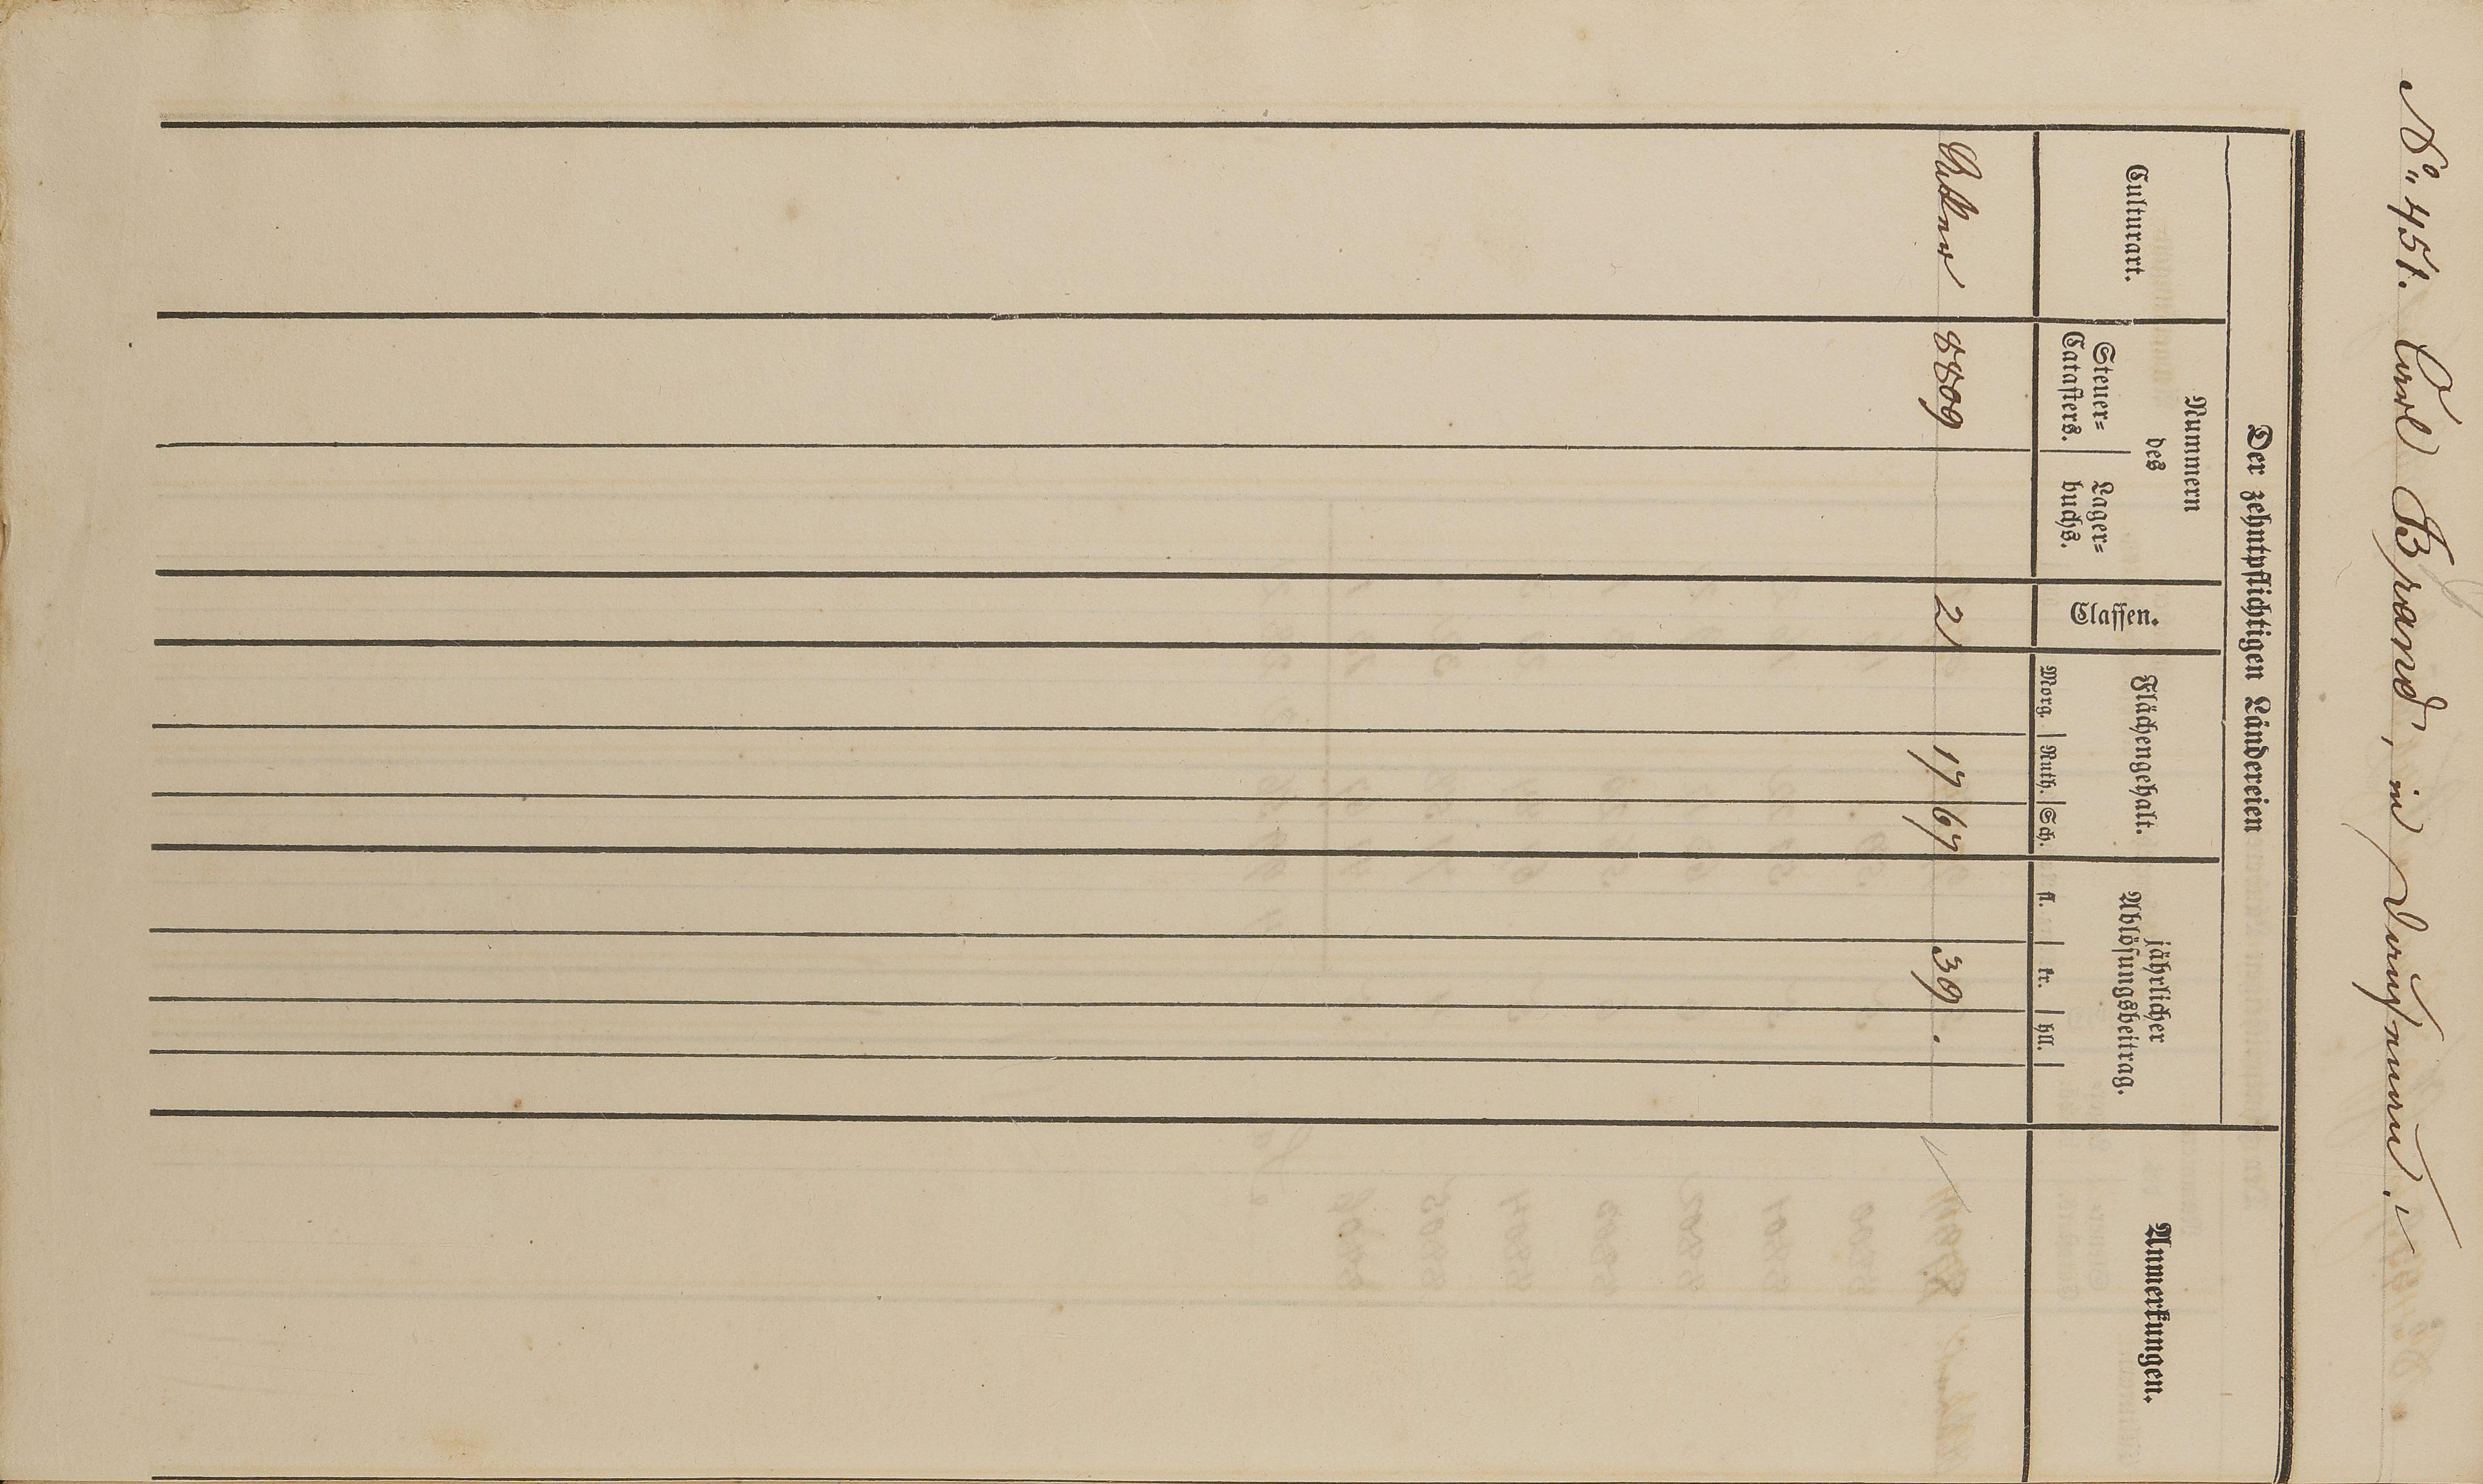 No. 451. Carl Brand, in
Der zehntpflichtigen Ländereien
Culturart.
Nummern
des
Steuer=
Catasters.
Lager=
buchs.
Classen.
Flächengehalt.
Morg. Ruth. Sch.
jährlicher
Ablösungsbeitrag.
fl. kr. hll.
Anmerkungen.
8809 2 17 67 39 .